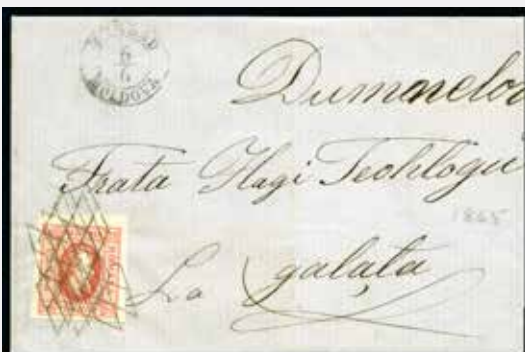 6
6
MOLDOVA
Dumnelor
Frata Hagi Teohlogu
1865
La galața